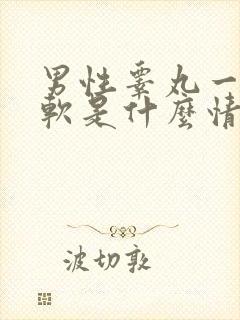 男性睾丸一
軟是什麼情
波切敦